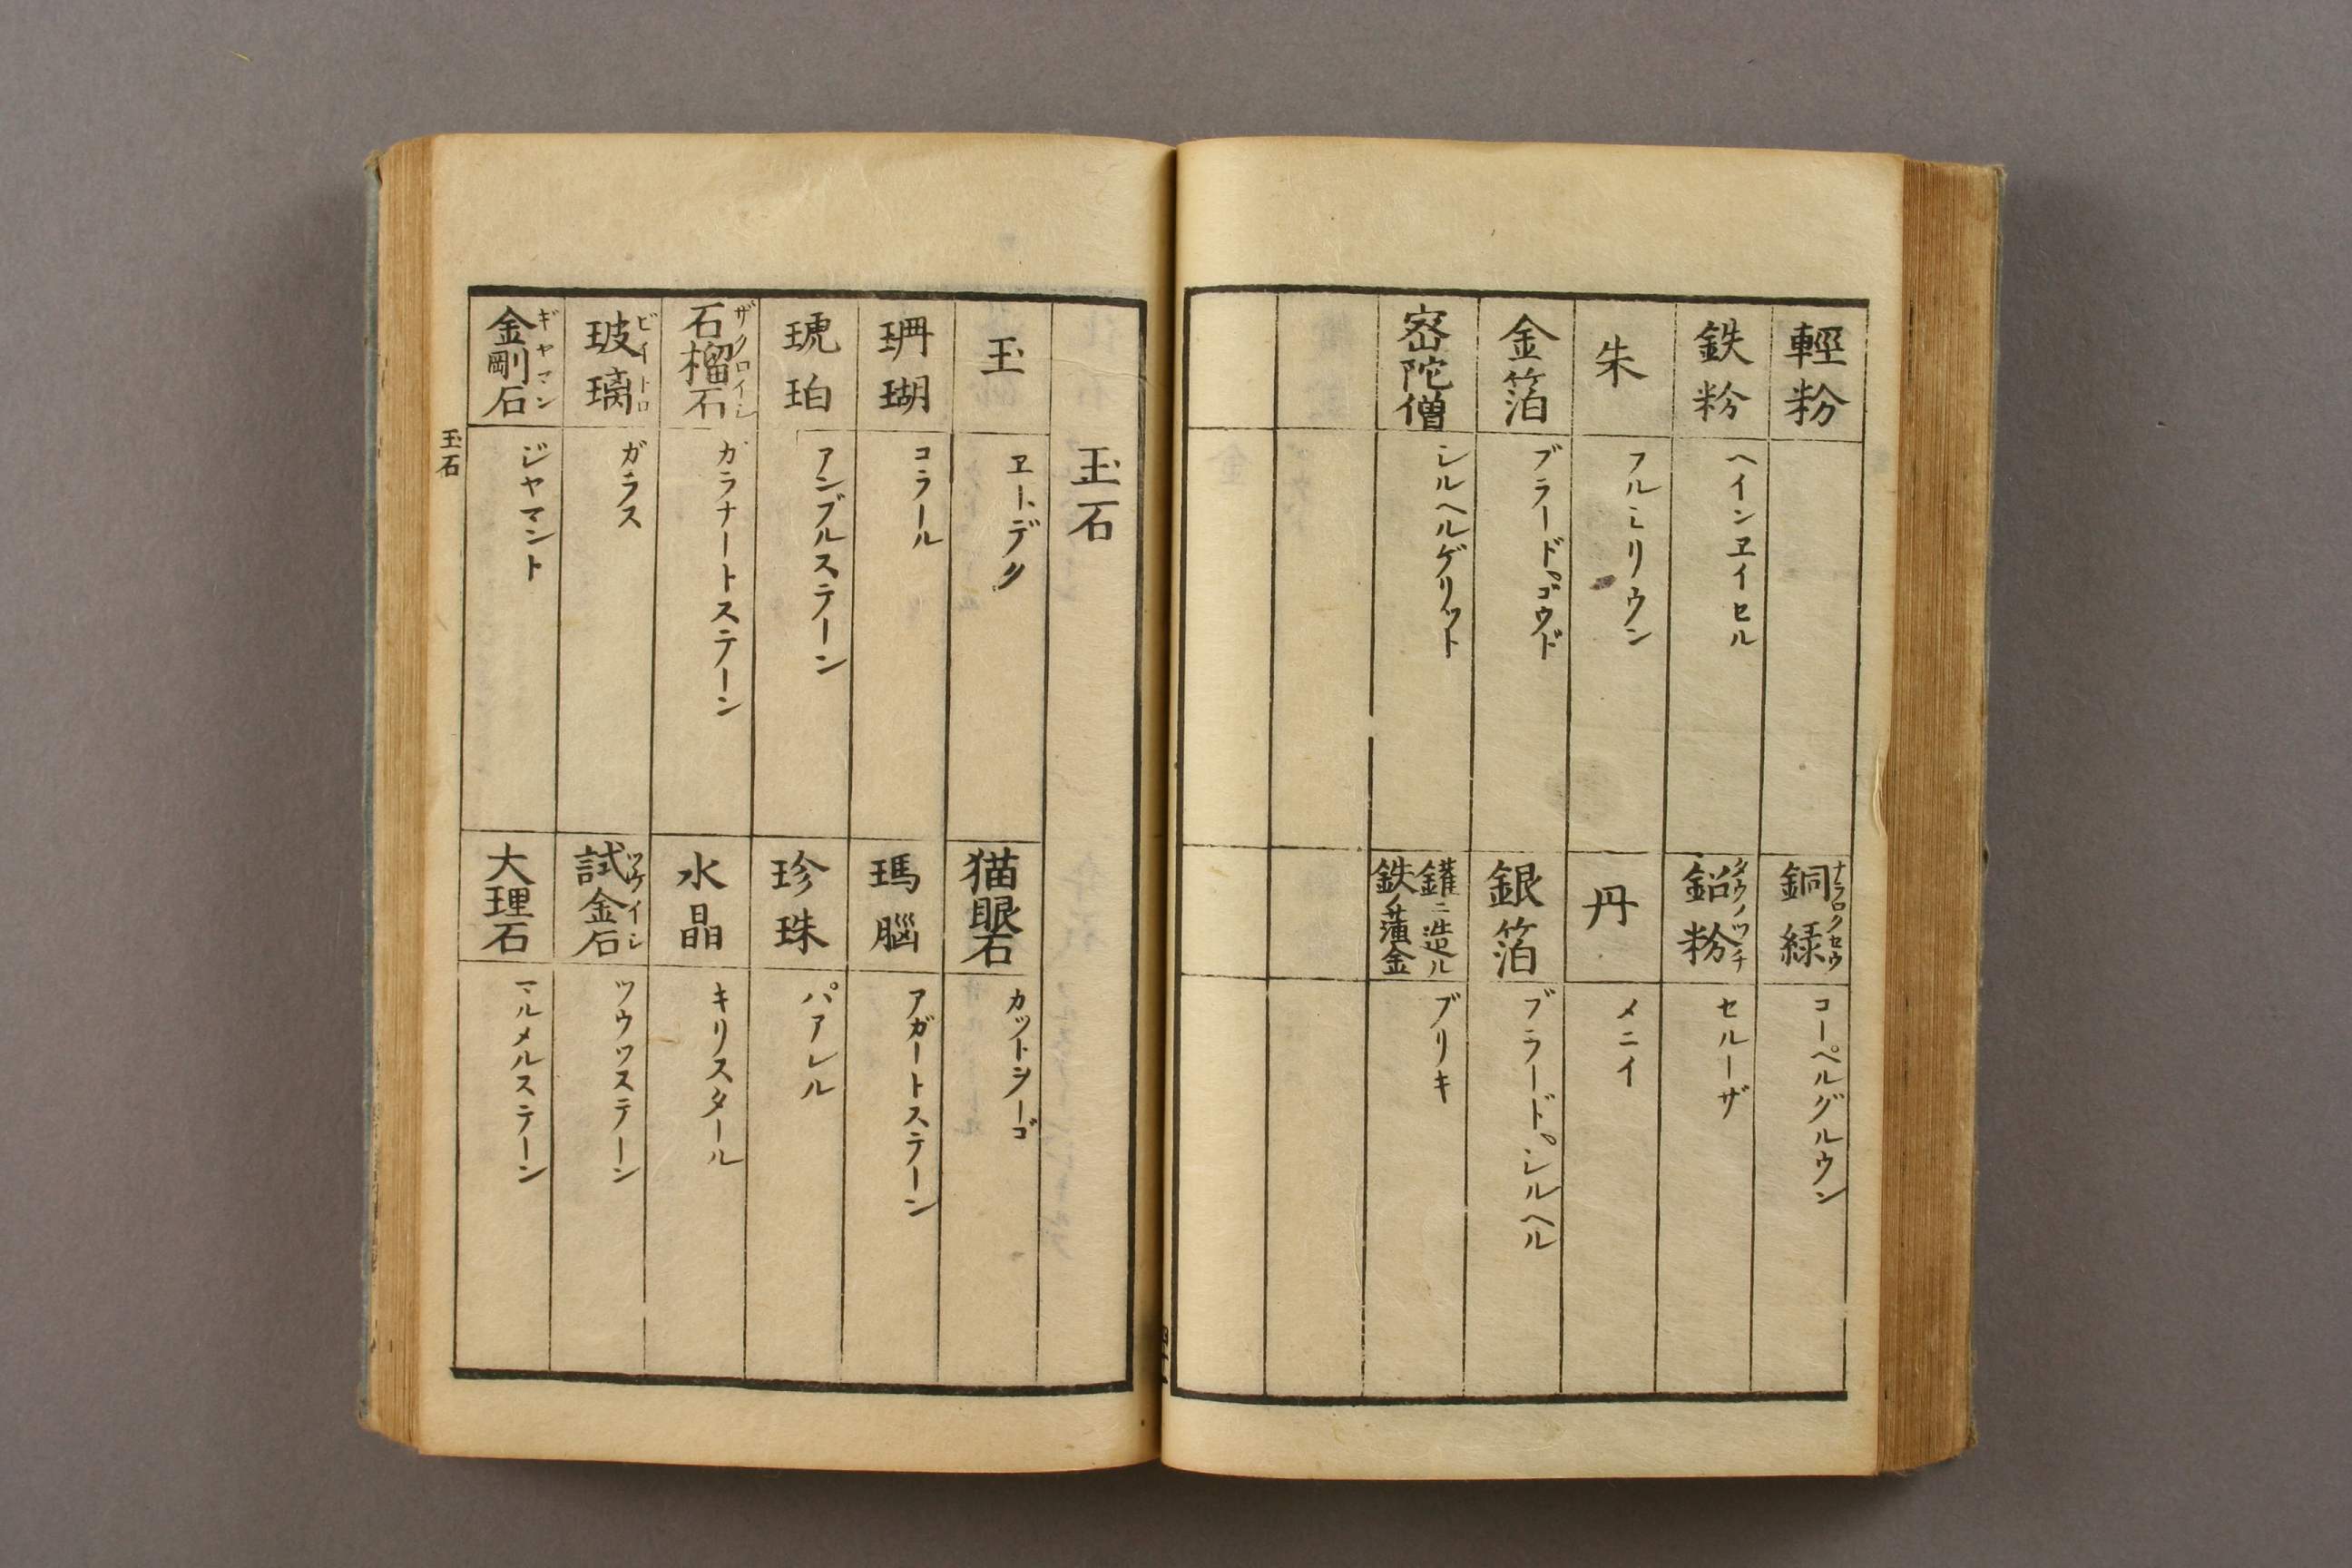 輕粉
銅緑 ナラロクセウ
コーペルグルウン
鉄粉
ヘインヱイセル
鉛粉 タウノツチ
セルーザ
朱
フルミリウン
丹
メニイ
金箔
ブラード゜ゴウド
銀箔
ブラード゜シルヘル
宻陀僧
シルヘルゲリット
鑵ニ造ル
鉄ノ薄金
ブリキ
玉石
玉
ヱートデ〃
猫眼石
カットヲーゴ
珊瑚
コラール
瑪腦
アガートステーン
琥珀
アンブルステーン
珍珠
パアレル
石榴石 ザクロイシ
ガラナートステーン
水晶
キリスタール
玻璃 ビイトロ
ガラス
試金石 ツケイシ
ツウツステーン
金剛石 ギヤマン
ジヤマント
大理石
マルメルステーン
玉石